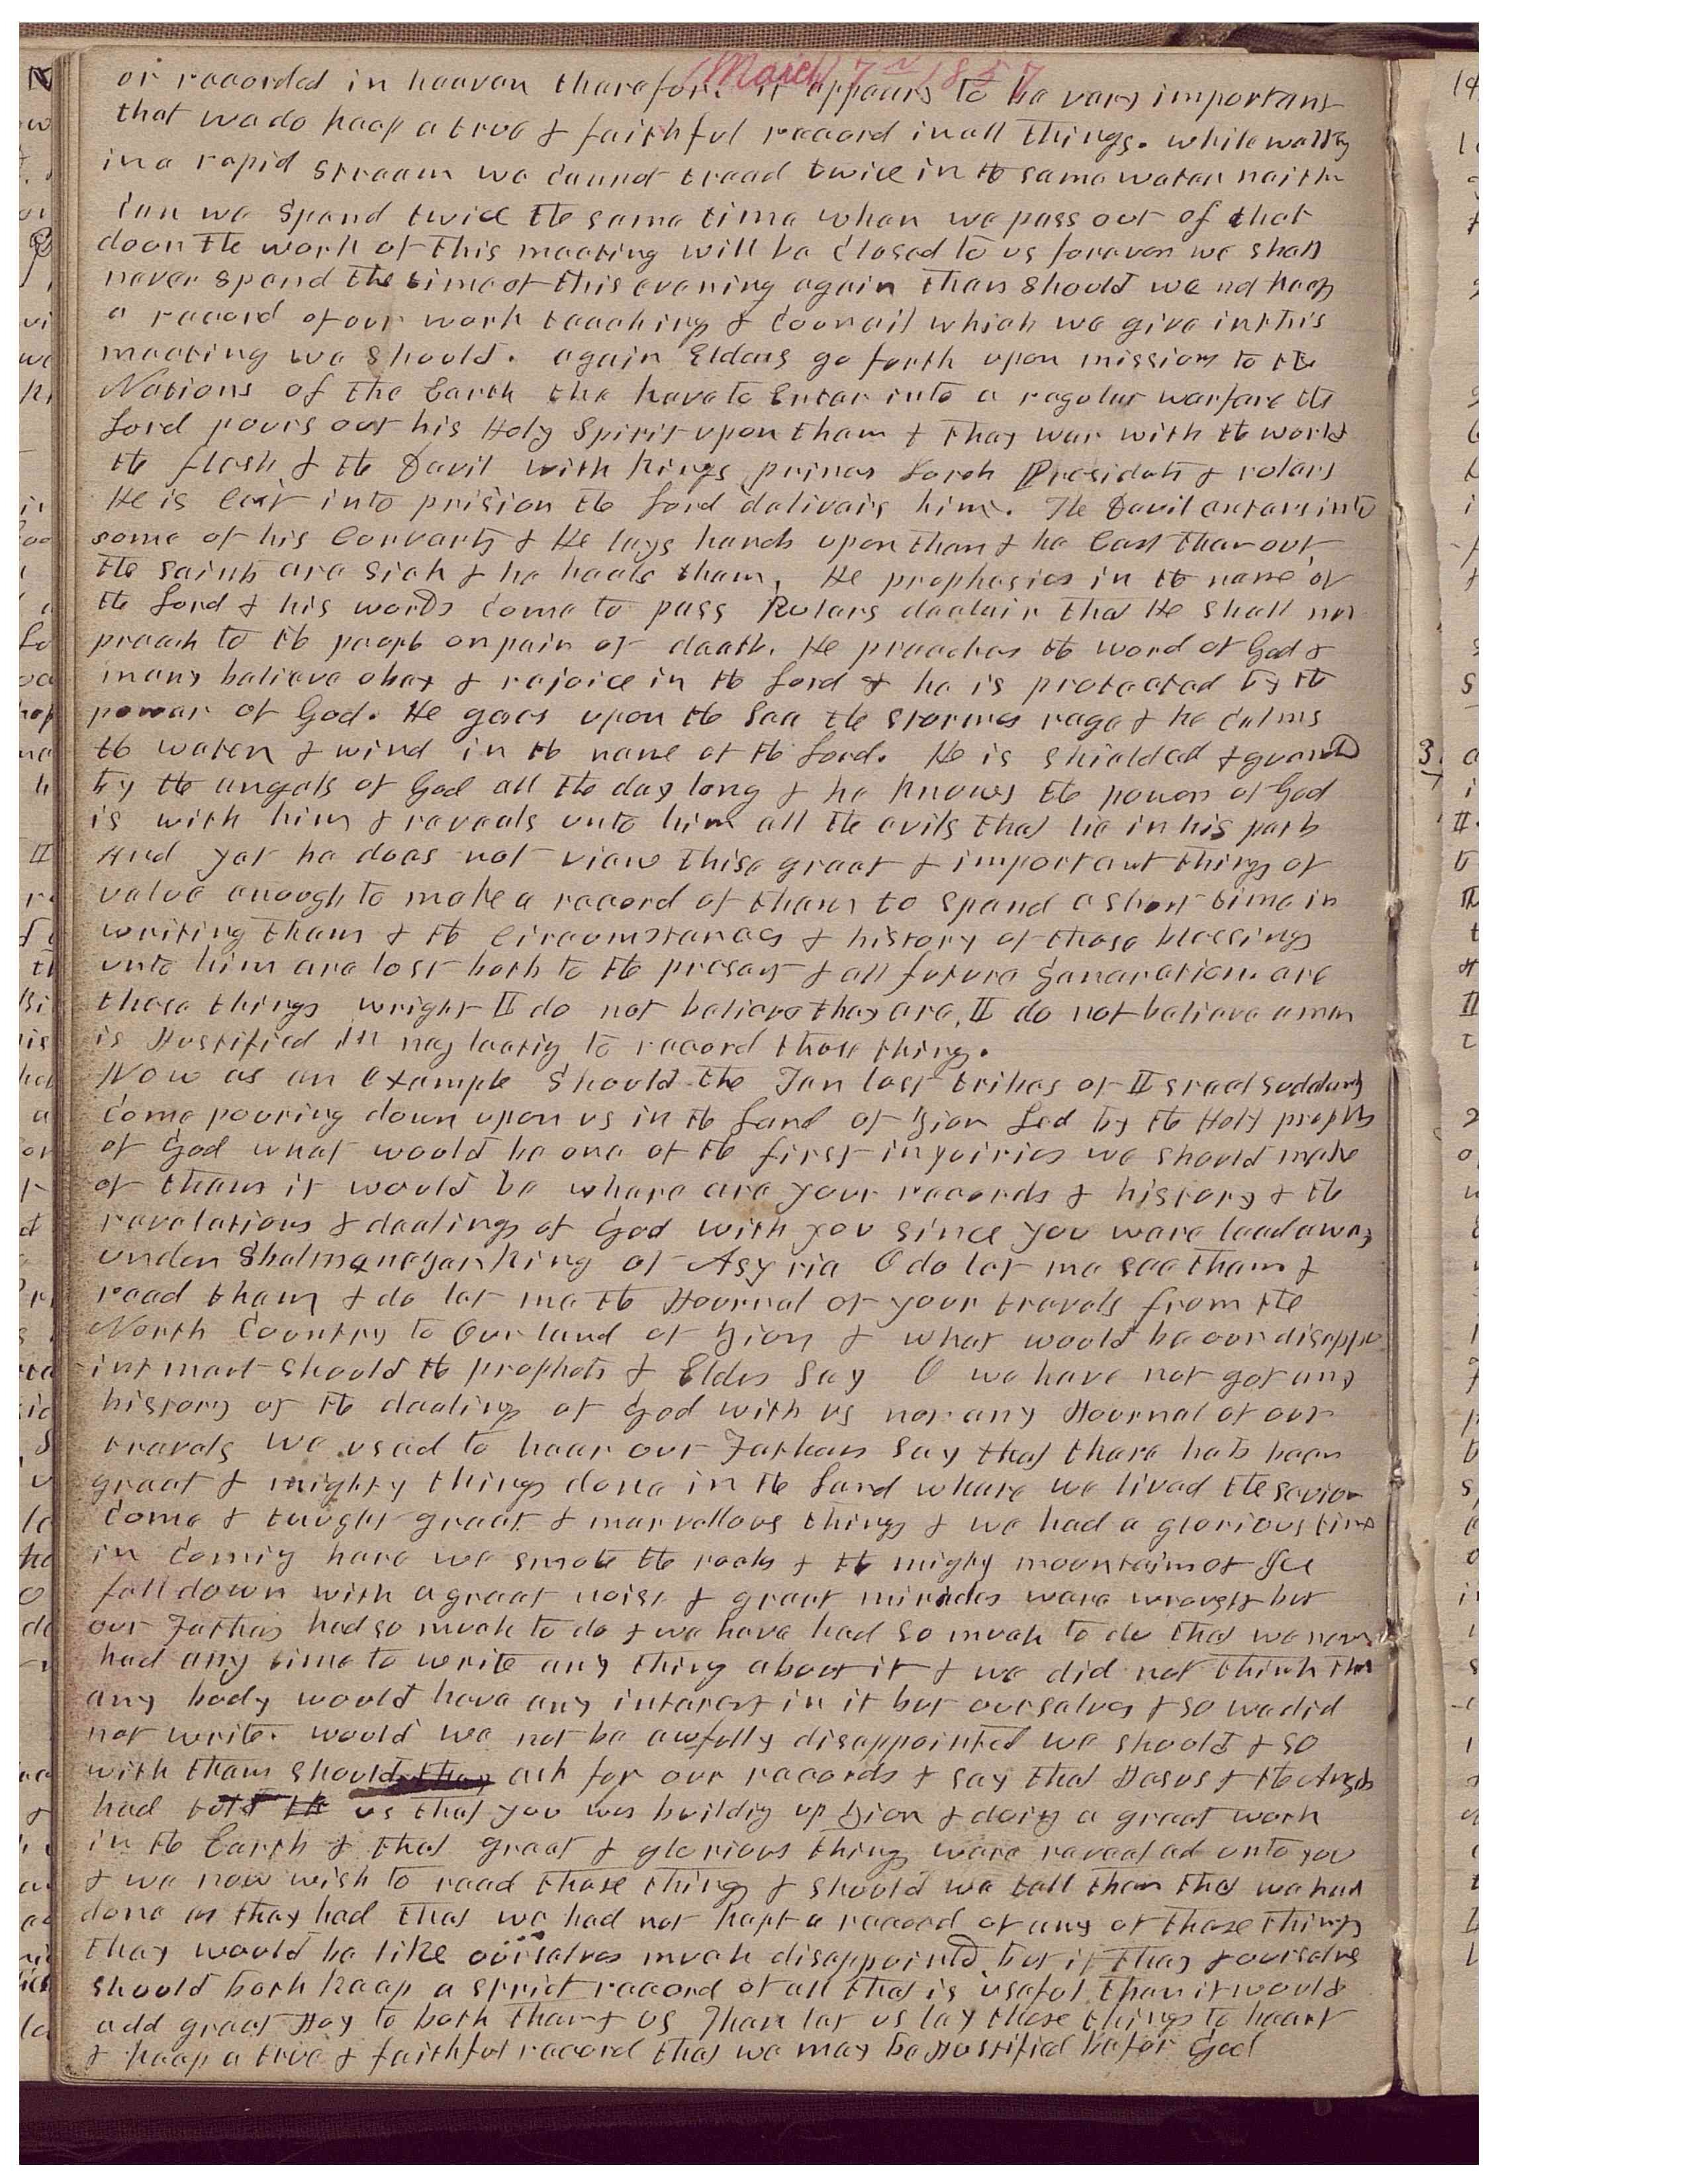 March 7th 1857
or recorded in heaven therefore it appears to be very important
that we do keep a true & faithful record in all things. while walkg
in a rapid stream we cannot tread twice in the same water neith
can we spend twice the same time when we pass out of that
door the work of this meeting will be closed to us forever we shall
never spend the time of this evening again then should we not keep
a record of our work teaching & Councils which we give in this
meeting we should. again Elders go forth upon missions to the
Nations of the Earth the have to Enter into a regular warfare the
Lord pours out his Holy Spirit upon them & they war with the world
the flesh & the Devil with Kings princes Lords Presidets & rulers
He is Cast into prision the Lord delivers him. The Devil enters into
some of his Converts & He lays hands upon them & he Cast them out
the saints are sick & he heals them. He prophesies in the name of
the Lord & his words Come to pass Rulers declair that He shall not
preach to the people on pain of death. He preaches the word of God &
many believe obey & rejoice in the Lord & he is protected by the
power of God. He goes upon the Sea the stormes rage & he calms
the water & wind in the name of the Lord. He is shielded & guarded
by the angels of God all the day long & he knows the power of God
is with him & reveals unto him all the evils that lie in his path
And yet he does not view these great & important things of
value enough to make a record of them to spend a short time in
writing them & the Circumstances & history of those blessings
unto him are lost both to the present & all future generation. are
these things wright II do not believe they are, II do not believe a man
is Justified in neglectig to record those things.
Now as an Example Should the Ten lost tribes of IIsrael suddenly
Come pouring down upon us in the Land of Zion Led by the Holy prophets
of God what would be one of the first inquiries we should make
of them it would be where are your records & history & the
revelations & dealings of God with you since you were lead away
under Shalmanezer King of Asyria O do let me see them &
read them & do let me the Journal of your travels from the
North Country to Our land of Zion & what would be our disappo
intment should the prophets & Elders Say O we have not got any
history of the dealings of God with us nor any Journal of our
travels we used to hear our Fathers Say that there hab been
great & mighty things done in the Land where we lived the savior
Come & taught great & marvellous things & we had a glorious time
in Comig here we smote the rocks & the mighty mountains of Ice
fell down with a great noise & great miricles ware wrought but
our Fathers had so much to do & we have had so much to do that we never
had any time to write any thing about it & we did not think that
any body would have any interest in it but ourselves & so we did
not write. would we not be awfully disappointed we should & so
with them should they ask for our records & say that Jesus & the Angels
had told us that you was buildig up Zion & doing a great work
in the Earth & that great & glorious things were revealed unto you
& we now wish to read those things & should we tell them that we had
done as they had that we had not kept a record of any of those things
they would be like ourselves much disappointd but if they & ourselves
should both keep a strict record of all that is useful then it would
add great Joy to both them & us Then let us lay these things to heart
& keep a true & faithful record that we may be Justified befor God